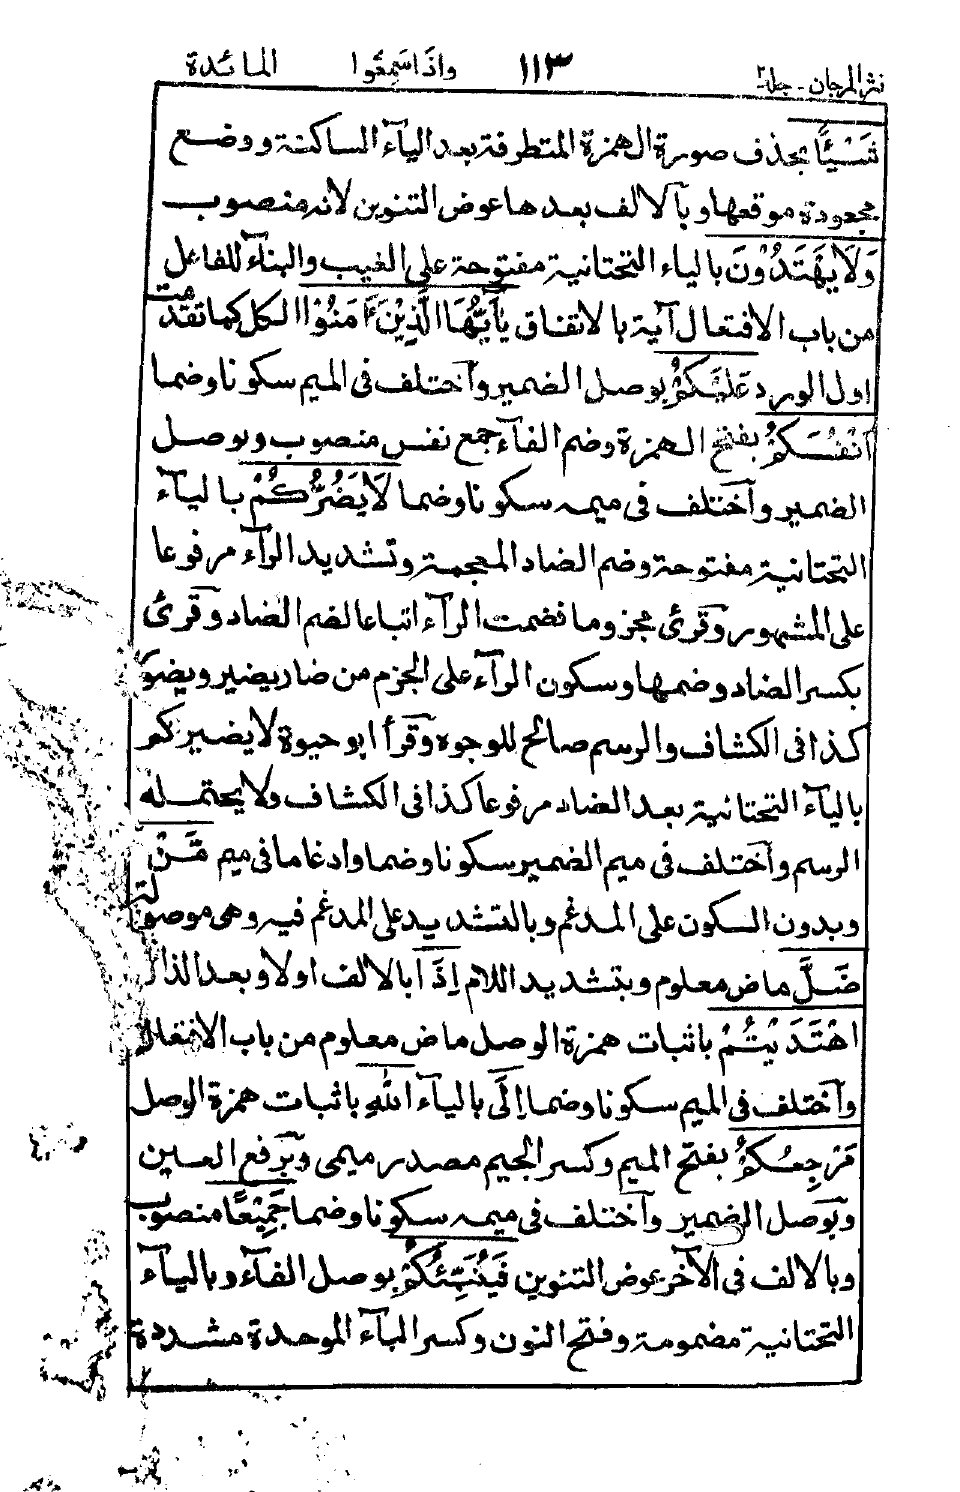 نثر المرجان - جلد ٢ ١١٣ واذا سمعوا المائدة
شَيْئًا بحذف صورة الهمزة المتطرفة بعد الياء الساكنة ووضع
مجعودة موقعها وبالالف بعدها عوض التنوين لانه منصوب
وَلَا يَهْتَدُوْنَ بالياء التحتانية مفتوحة على الغيب والبناء للفاعل
من باب الافتعال آية بالاتفاق يٰٓاَيُّهَا الَّذِيْنَ ءَامَنُوْا الكل كما تقدمت
اول الورد عَلَيْكُمْ بوصل الضمير واختلف فى الميم سكونا وضما
اَنْفُسَكُمْ بفتح الهمزة وضم الفاء جمع نفس منصوب وبوصل
الضمير واختلف فى ميمه سكونا وضما لَا يَضُرُّكُمْ بالياء
التحتانية مفتوحة وضم الضاد المعجمة وتشديد الراء مرفوعا
على المشهور وقرئ مجزوما فضمت الراء اتباعا لضم الضاد وقرئ
بكسر الضاد وضمها وسكون الراء على الجزم من ضار يضير ويضور
كذا فى الكشاف والرسم صالح للوجوه وقرأ ابو حيوة لا يضيركم
بالياء التحتانية بعد الضاد مرفوعا كذا فى الكشاف ولا يحتمله
الرسم واختلف فى ميم الضمير سكونا وضما وادغاما فى ميم مَّنْ
وبدون السكون على المدغم وبالتشديد على المدغم فيه وهى موصولة
ضَلَّ ماض معلوم وبتشديد اللام اِذَا بالالف اولا وبعد الذال
اهْتَدَيْتُمْ باثبات همزة الوصل ماض معلوم من باب الافتعال
واختلف فى الميم سكونا وضما اِلَى بالياء اللّٰهِ باثبات همزة الوصل
مَرْجِعُكُمْ بفتح الميم وكسر الجيم مصدر ميمى وبرفع العين
وبوصل الضمير واختلف فى ميمه سكونا وضما جَمِيْعًا منصوب
وبالالف فى الآخر عوض التنوين فَيُنَبِّئُكُمْ بوصل الفاء وبالياء
التحتانية مضمومة وفتح النون وكسر الباء الموحدة مشددة